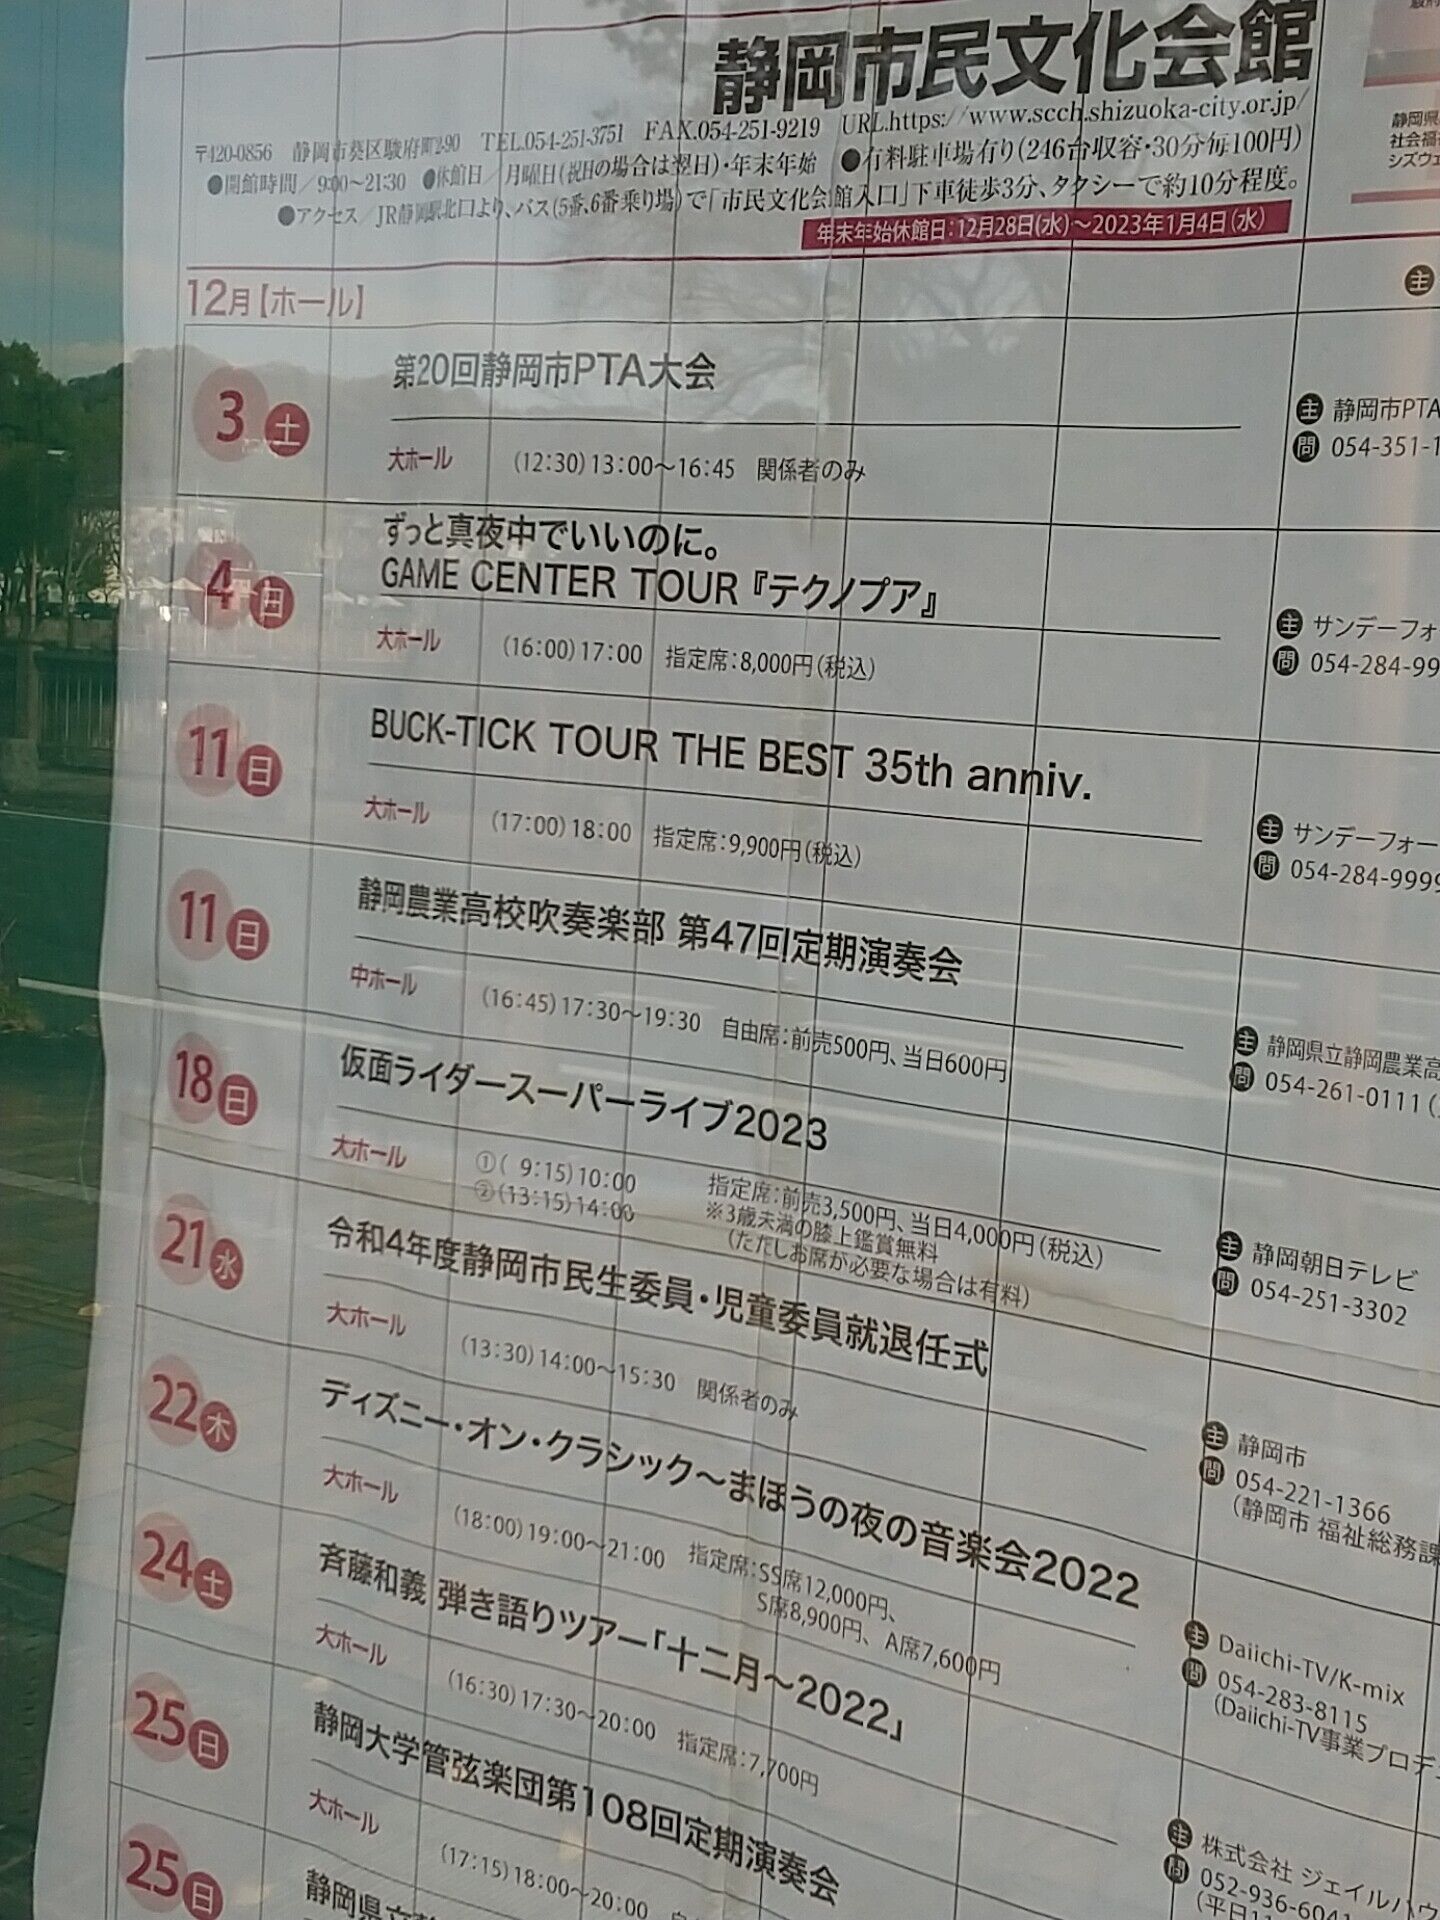 静岡市民文化会館
〒420-0856 静岡市葵区駿府町2-90 TEL.054-251-3751 FAX.054-251-9219 URL.https://www.scch.shizuoka-city.or.jp/
●開館時間/9:00~21:30 ●休館日/月曜日(祝日の場合は翌日)・年末年始 ●有料駐車場有り(246台収容・30分毎100円)
●アクセス/JR静岡駅北口より、バス(5番、6番乗り場)で「市民文化会館入口」下車徒歩3分、タクシーで約10分程度。
年末年始休館日:12月28日(水)~2023年1月4日(水)
静岡県
社会福
シズウェ
12月【ホール】
主
3 土
第20回静岡市PTA大会
大ホール (12:30)13:00~16:45 関係者のみ
主 静岡市PTA
問 054-351-1
4 日
ずっと真夜中でいいのに。
GAME CENTER TOUR『テクノプア』
大ホール (16:00)17:00 指定席:8,000円(税込)
主 サンデーフォ
問 054-284-99
11 日
BUCK-TICK TOUR THE BEST 35th anniv.
大ホール (17:00)18:00 指定席:9,900円(税込)
主 サンデーフォー
問 054-284-9999
11 日
静岡農業高校吹奏楽部 第47回定期演奏会
中ホール (16:45)17:30~19:30 自由席:前売500円、当日600円
主 静岡県立静岡農業高
問 054-261-0111(
18 日
仮面ライダースーパーライブ2023
大ホール ①( 9:15)10:00 指定席:前売3,500円、当日4,000円(税込)
②(13:15)14:00 ※3歳未満の膝上鑑賞無料
(ただしお席が必要な場合は有料)
主 静岡朝日テレビ
問 054-251-3302
21 水
令和4年度静岡市民生委員・児童委員就退任式
大ホール (13:30)14:00~15:30 関係者のみ
主 静岡市
問 054-221-1366
(静岡市 福祉総務課
22 木
ディズニー・オン・クラシック~まほうの夜の音楽会2022
大ホール (18:00)19:00~21:00 指定席:SS席12,000円、
S席8,900円、A席7,600円
主 Daiichi-TV/K-mix
問 054-283-8115
(Daiichi-TV事業プロデュ
24 土
斉藤和義 弾き語りツアー「十二月~2022」
大ホール (16:30)17:30~20:00 指定席:7,700円
主 株式会社 ジェイルハウ
問 052-936-6041
(平日11
25 日
静岡大学管弦楽団第108回定期演奏会
大ホール (17:15)18:00~20:00
25 日
静岡県立